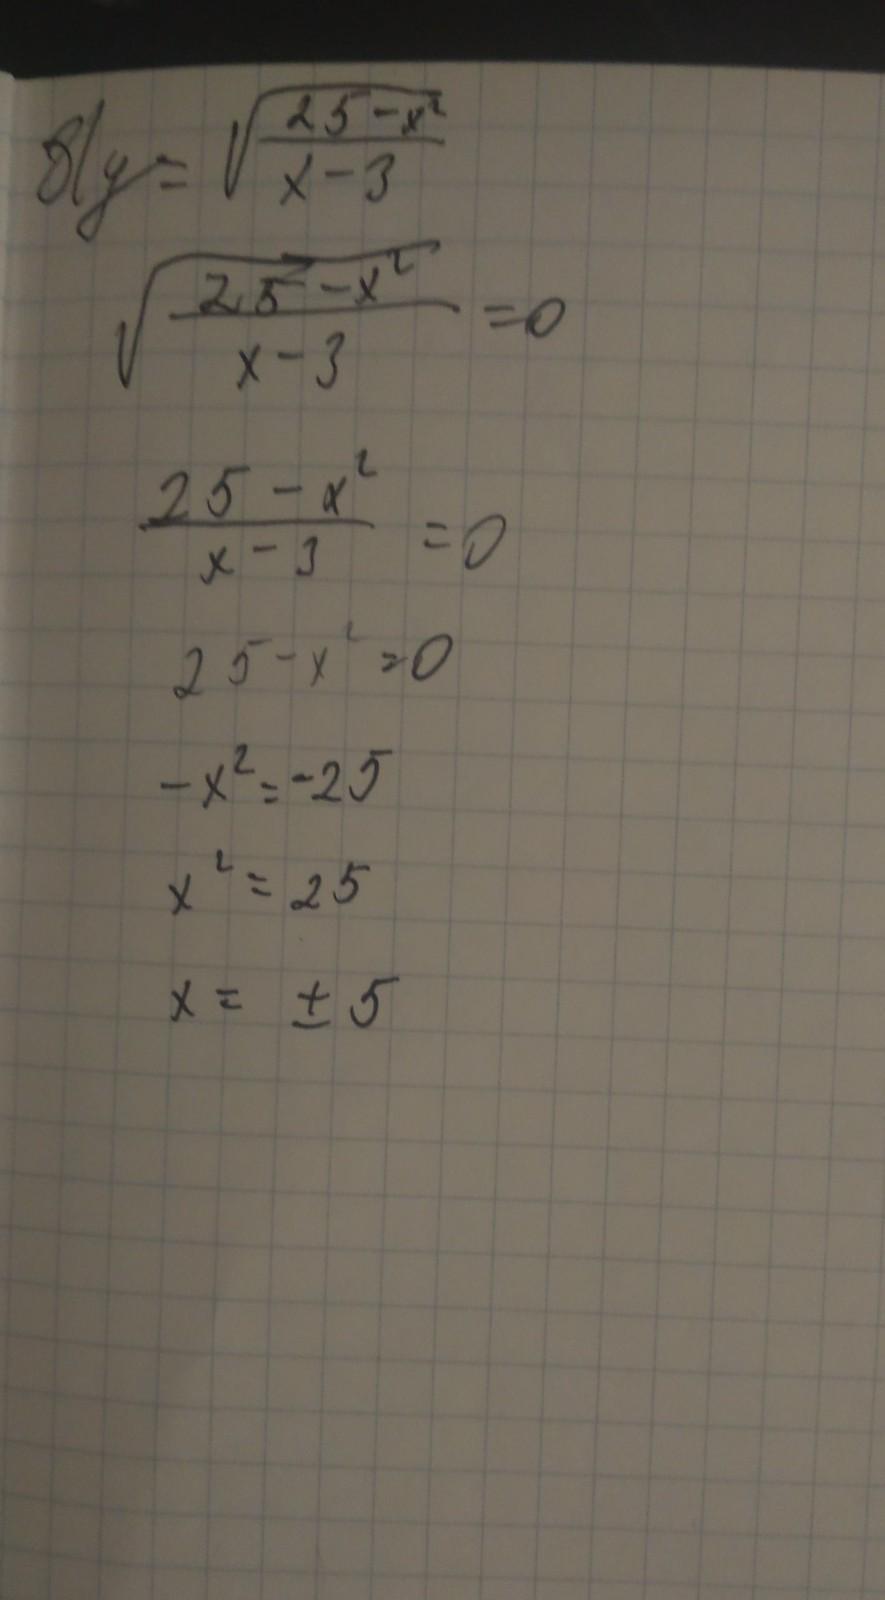 б) y = √((25 - x²)/(x - 3))
√((25 - x²)/(x - 3)) = 0
(25 - x²)/(x - 3) = 0
25 - x² = 0
-x² = -25
x² = 25
x = ± 5